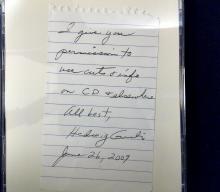 I give you
permission to
use cuts & info
on CD & elsewhere
All best,
Hedwig
June 26, 2009